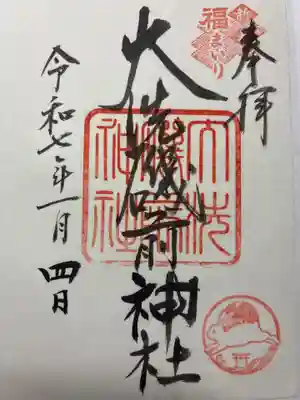 奉拝
福まいり
大洗磯前神社
大洗
磯前
神社
令和七年一月四日